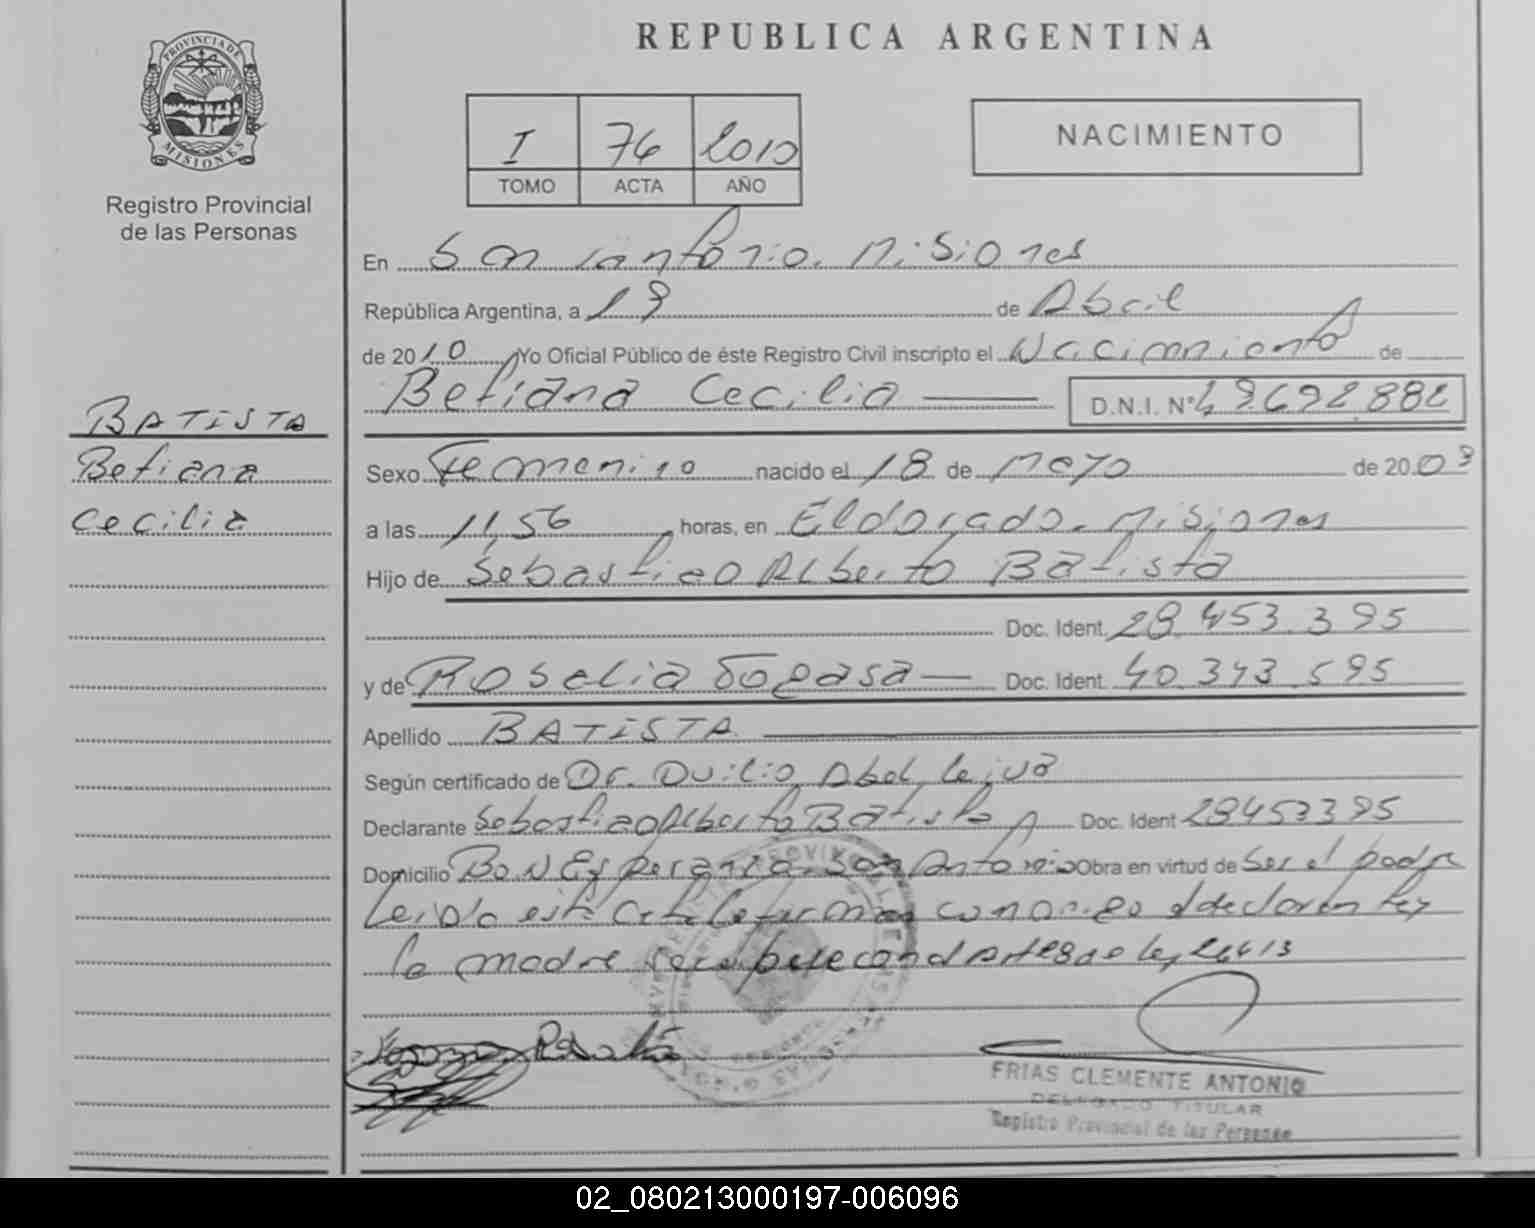 PROVINCIA DE
MISIONES
Registro Provincial
de las Personas
BATISTA
Betiana
Cecilia
REPUBLICA ARGENTINA
I 76 2010
TOMO ACTA AÑO
NACIMIENTO
En San Antonio. Misiones
República Argentina, a 19 de Abril
de 2010 Yo Oficial Público de éste Registro Civil inscripto el Nacimiento de
Betiana Cecilia D.N.I. Nº 49.692.882
Sexo Femenino nacido el 18 de Mayo de 2009
a las 11,56 horas, en Eldorado. Misiones
Hijo de Sebastiao Alberto Batista
Doc. Ident. 28.453.395
y de Roselia Doc. Ident. 40.343.595
Apellido BATISTA
Según certificado de Dr. Duilio Abel Leiva
Declarante Sebastiao Alberto Batista Doc. Ident 28453395
Domicilio Bo N Esperanza San Antonio Obra en virtud de ser el padre
Leida esta acta la firman conmigo el declarante y
la madre ley 26413
FRIAS CLEMENTE ANTONIO
DELEGADO TITULAR
Registro Provincial de las Personas
02_080213000197-006096